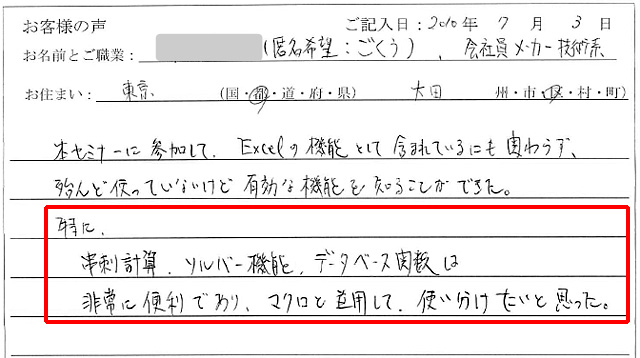 お客様の声 ご記入日：2010年 7月 3日
お名前とご職業： (匿名希望：ごくう)、会社員メーカー技術系
お住まい： 東京 (国・都・道・府・県) 大田 州・市・区・村・町)
本セミナーに参加して、Excelの機能として含まれているにも関わらず、
殆んど使っていないけど有効な機能を知ることができた。
特に、
串刺計算、ソルバー機能、データベース関数は
非常に便利であり、マクロと並用して、使い分けたいと思った。